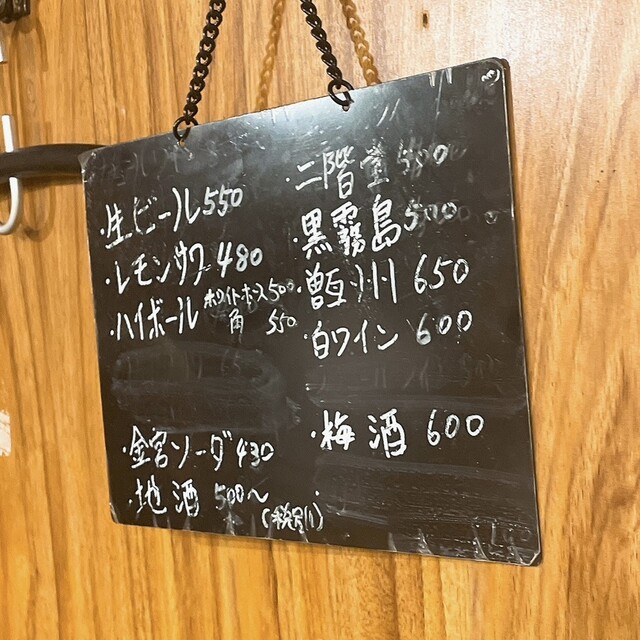 ・生ビール 550
・レモンサワー 480
・ハイボール ホワイトホース 500
角 550
・金宮ソーダ 430
・地酒 500〜
(税別)
・二階堂 500
・黒霧島 500
・甑州 650
・白ワイン 600
・梅酒 600